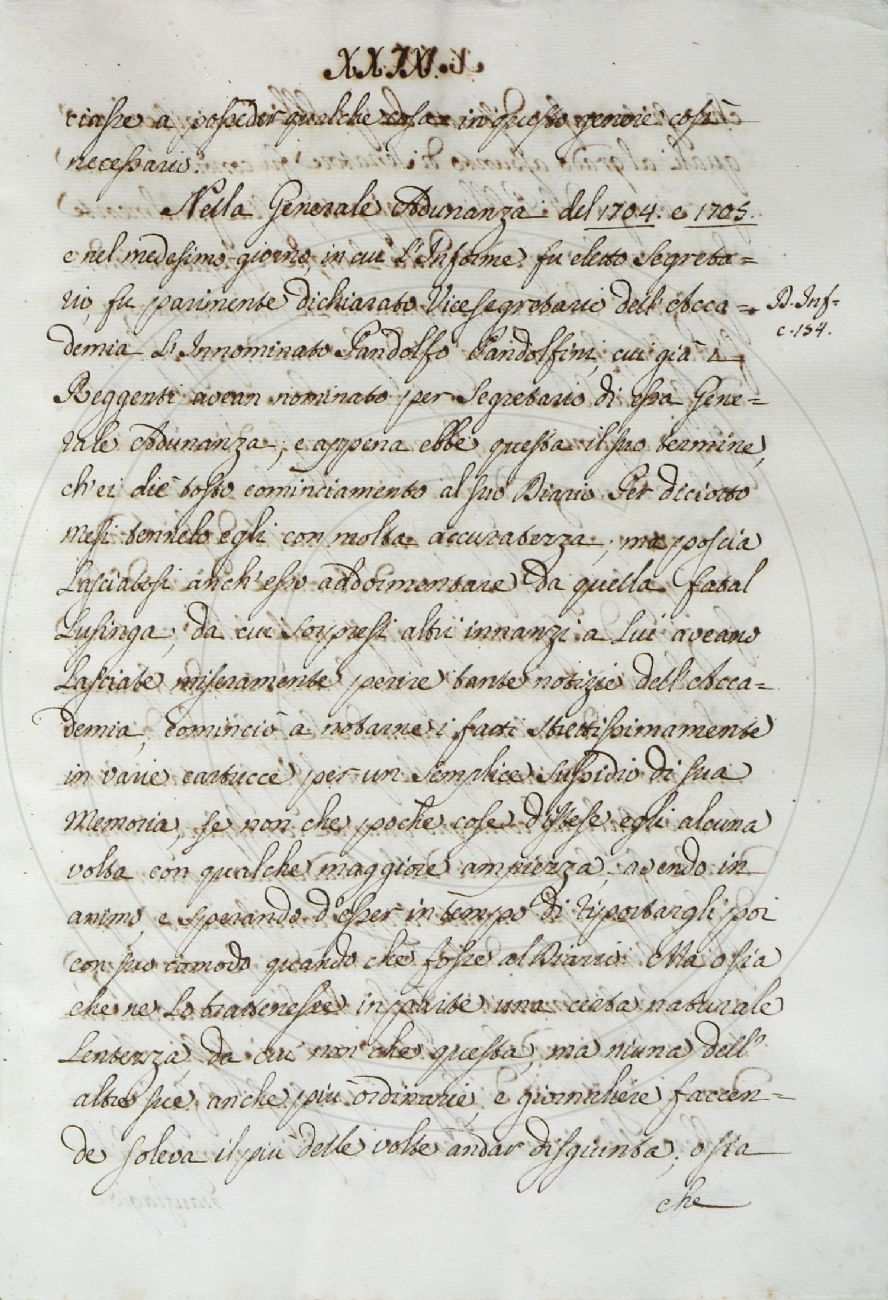 XXXIV.
ciasse a posseder qualche cosa in questo genere così
necessario.
Nella Generale Adunanza del 1704. e 1705.
e nel medesimo giorno, in cui L'Informe fu eletto Segreta=
rio, fu parimente dichiarato Vicesegretario dell'Acca=
D. Inf.
c. 154.
demia L'Innominato Pandolfo Pandolfini, cui già i
Reggenti avean nominato per Segretario di essa Gene=
rale Adunanza, e appena ebbe questa il suo termine,
ch'ei diè tosto cominciamento al suo Diario. Per diciotto
mesi tennelo egli con molta accuratezza; ma poscia
Lasciatosi anch'esso addormentare da quella fatal
Lusinga, da cui sorpresi altri innanzi a Lui aveano
Lasciate miseramente perire tante notizie dell'Acca=
demia, cominciò a notarne i fatti strettissimamente
in varie cartucce per un semplice sussidio di sua
Memoria, se non che poche cose distese egli alcuna
volta con qualche maggiore ampiezza, avendo in
animo, e sperando d'esser in tempo di riportargli poi
con suo comodo quando che fosse al Diario. Ma o sia
che ne Lo trattenesse in parte una certa naturale
Lentezza, da cui non che questa, ma niuna dell'
altre sue anche più ordinarie, e giornaliere faccen=
de soleva il più delle volte andar disgiunta; o sia
che